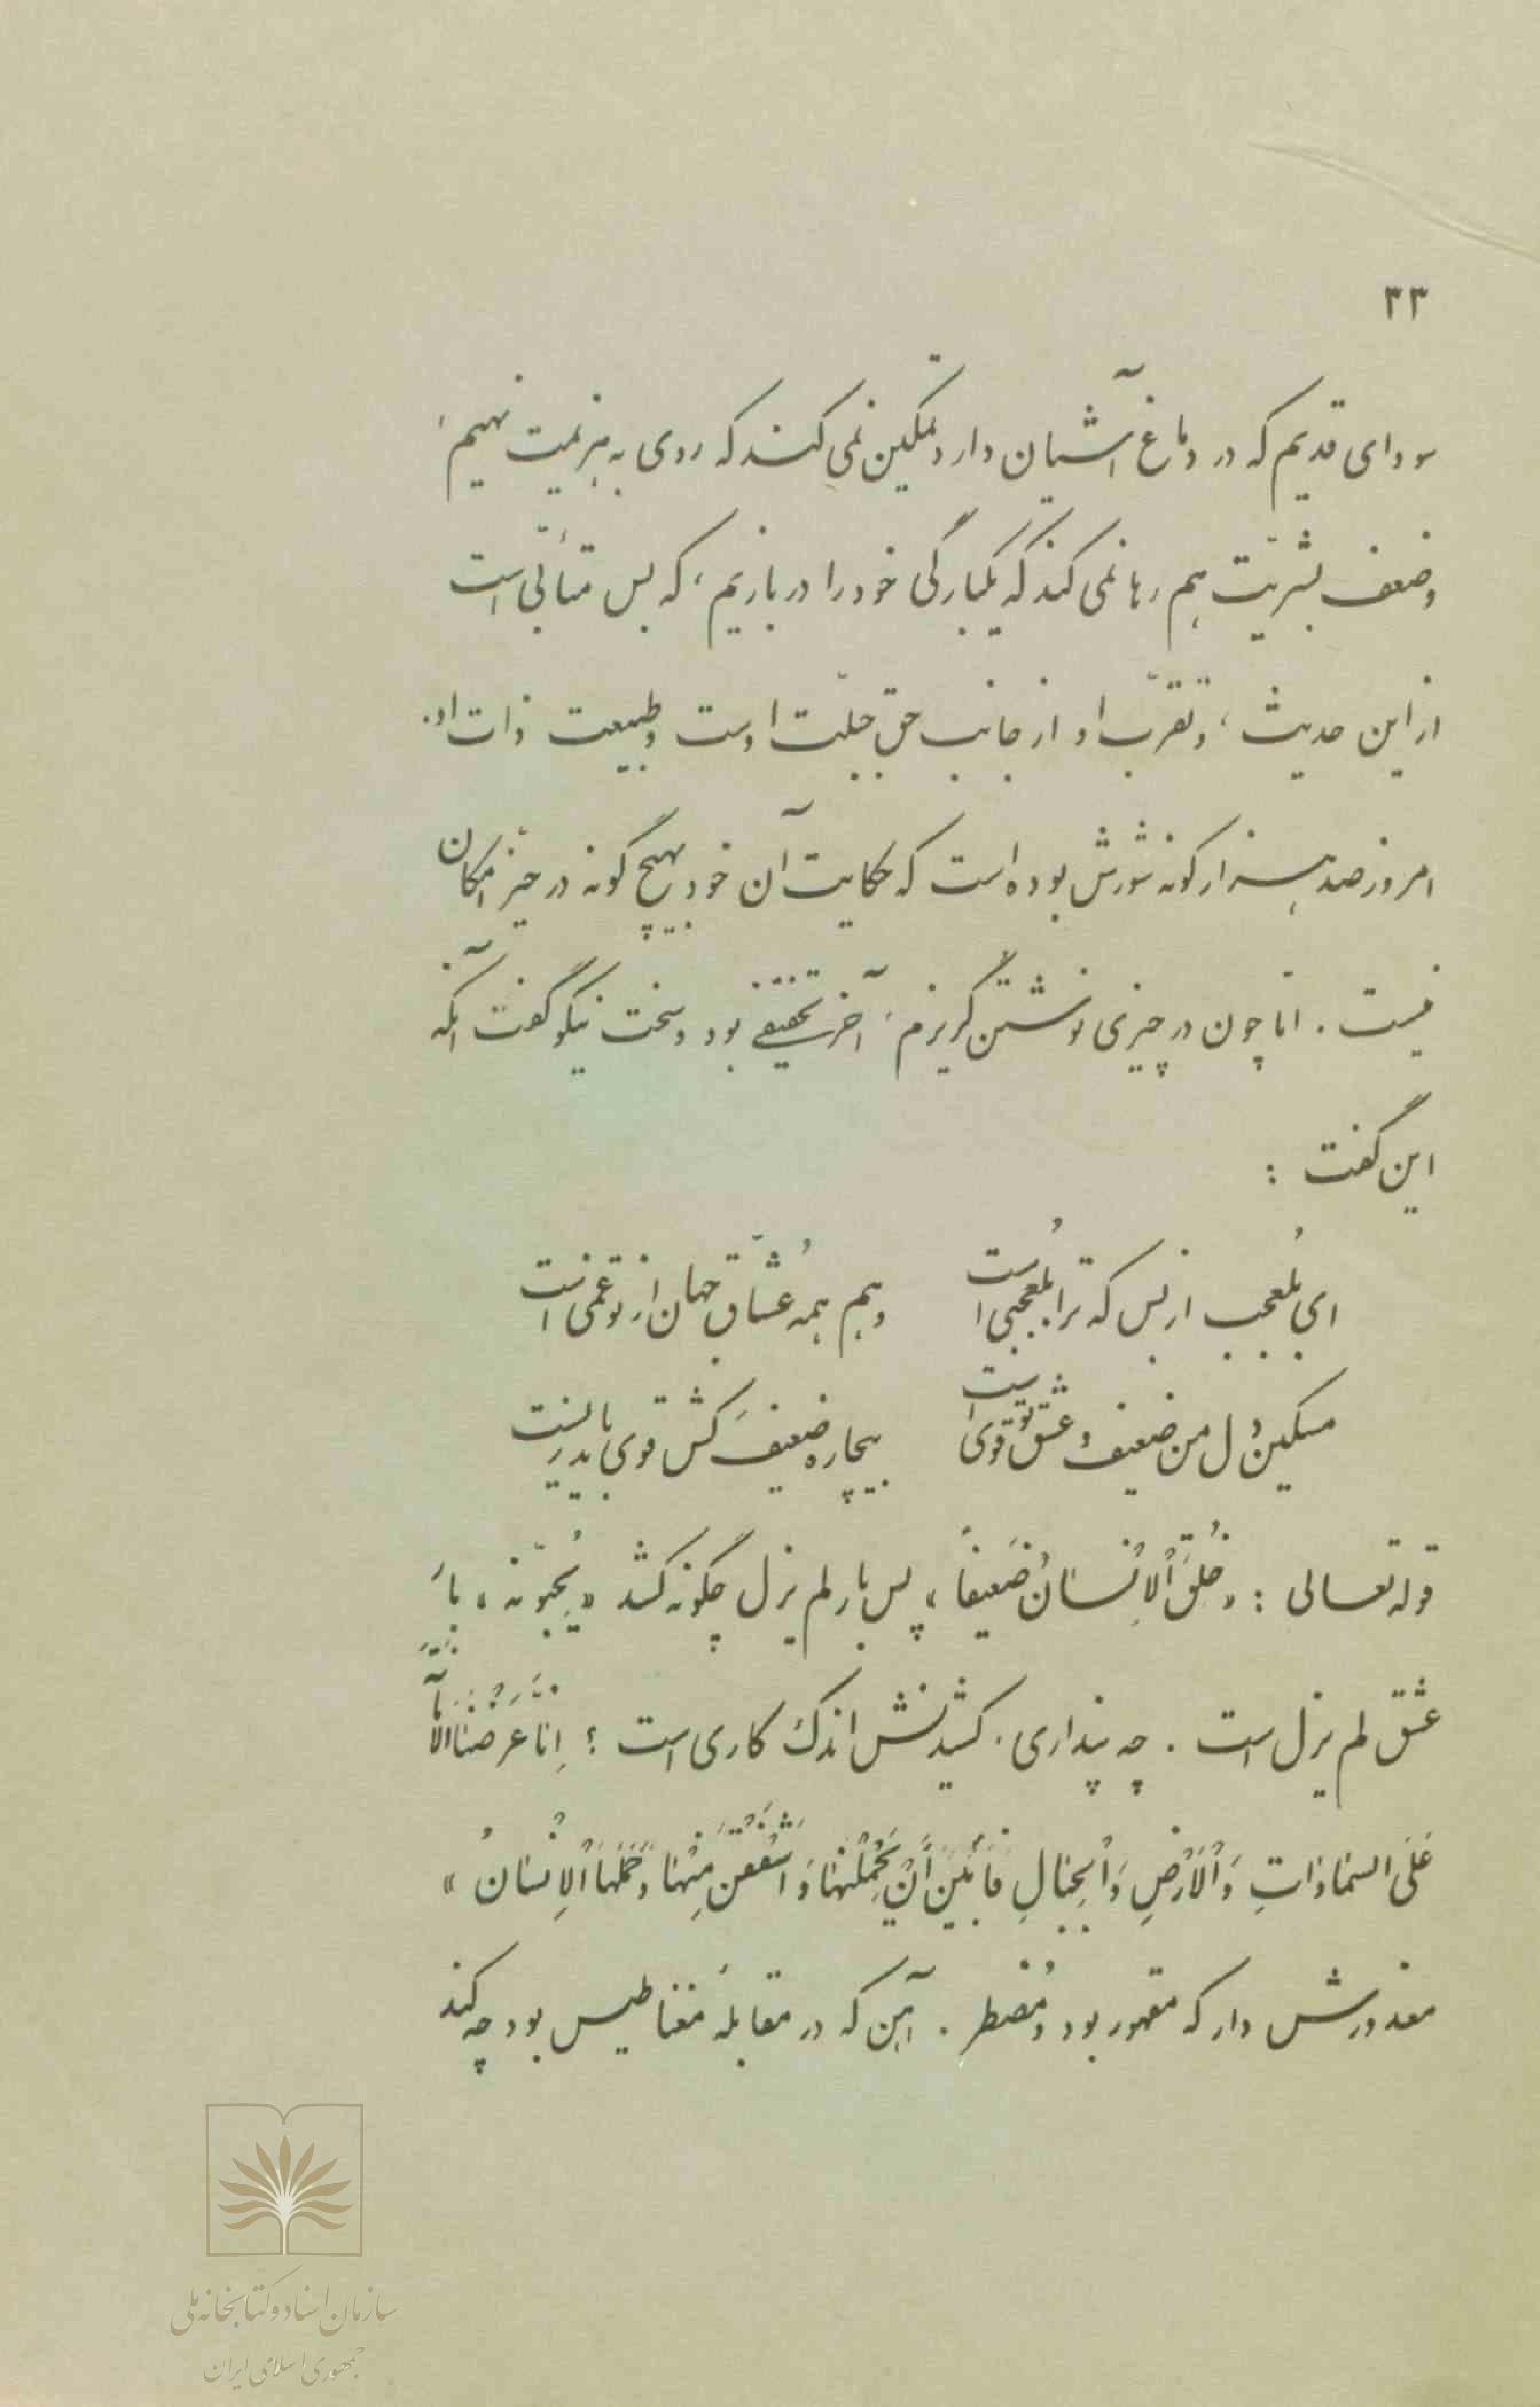 ۳۳
سودای قدیم که در دماغ آشیان دارد تمکین نمی کند که روی به هزیمت نهیم،
وضعف بشریّت هم رها نمی کند که یکبارگی خود را در بازیم، که بس متأبّی است
از این حدیث، و تقرّب او از جانب حق جبلّت اوست و طبیعت ذات او.
امروز صد هزار گونه شورش بوده است که حکایت آن خود بهیچ گونه در حیّز امکان
نیست. امّا چون در چیزی نوشتن گریزم، آخر تخفیفی بود و سخت نیکو گفت آنکه
این گفت :
ای بُلعجب از بس که ترا بُلعجبی است
وهم همه عُشّاق جهان از تو غمی است
مسکین دل من ضعیف و عشق تو قوی است
بیچاره ضعیف کَش قوی باید زیست
قوله تعالی : «خُلِقَ الْاِنْسانُ ضَعیفاً»، پس بار لم یزل چگونه کشد «یُحِبّونَه»، بارِ
عشق لم یزل است. چه پنداری. کشیدنش اندک کاری است ؟ اِنّا عَرَضْنَا الْاَمانَةَ
عَلَی السَّماواتِ وَالْاَرْضِ وَالْجِبالِ فَاَبَیْنَ اَنْ یَحْمِلْنَها وَاَشْفَقْنَ مِنْها وَحَمَلَهَا الْاِنْسانُ»
معذورش دار که مقهور بود و مُضطر. آهن که در مقابلهٔ مغناطیس بود چه کند
سازمان اسناد و کتابخانه ملی
جمهوری اسلامی ایران